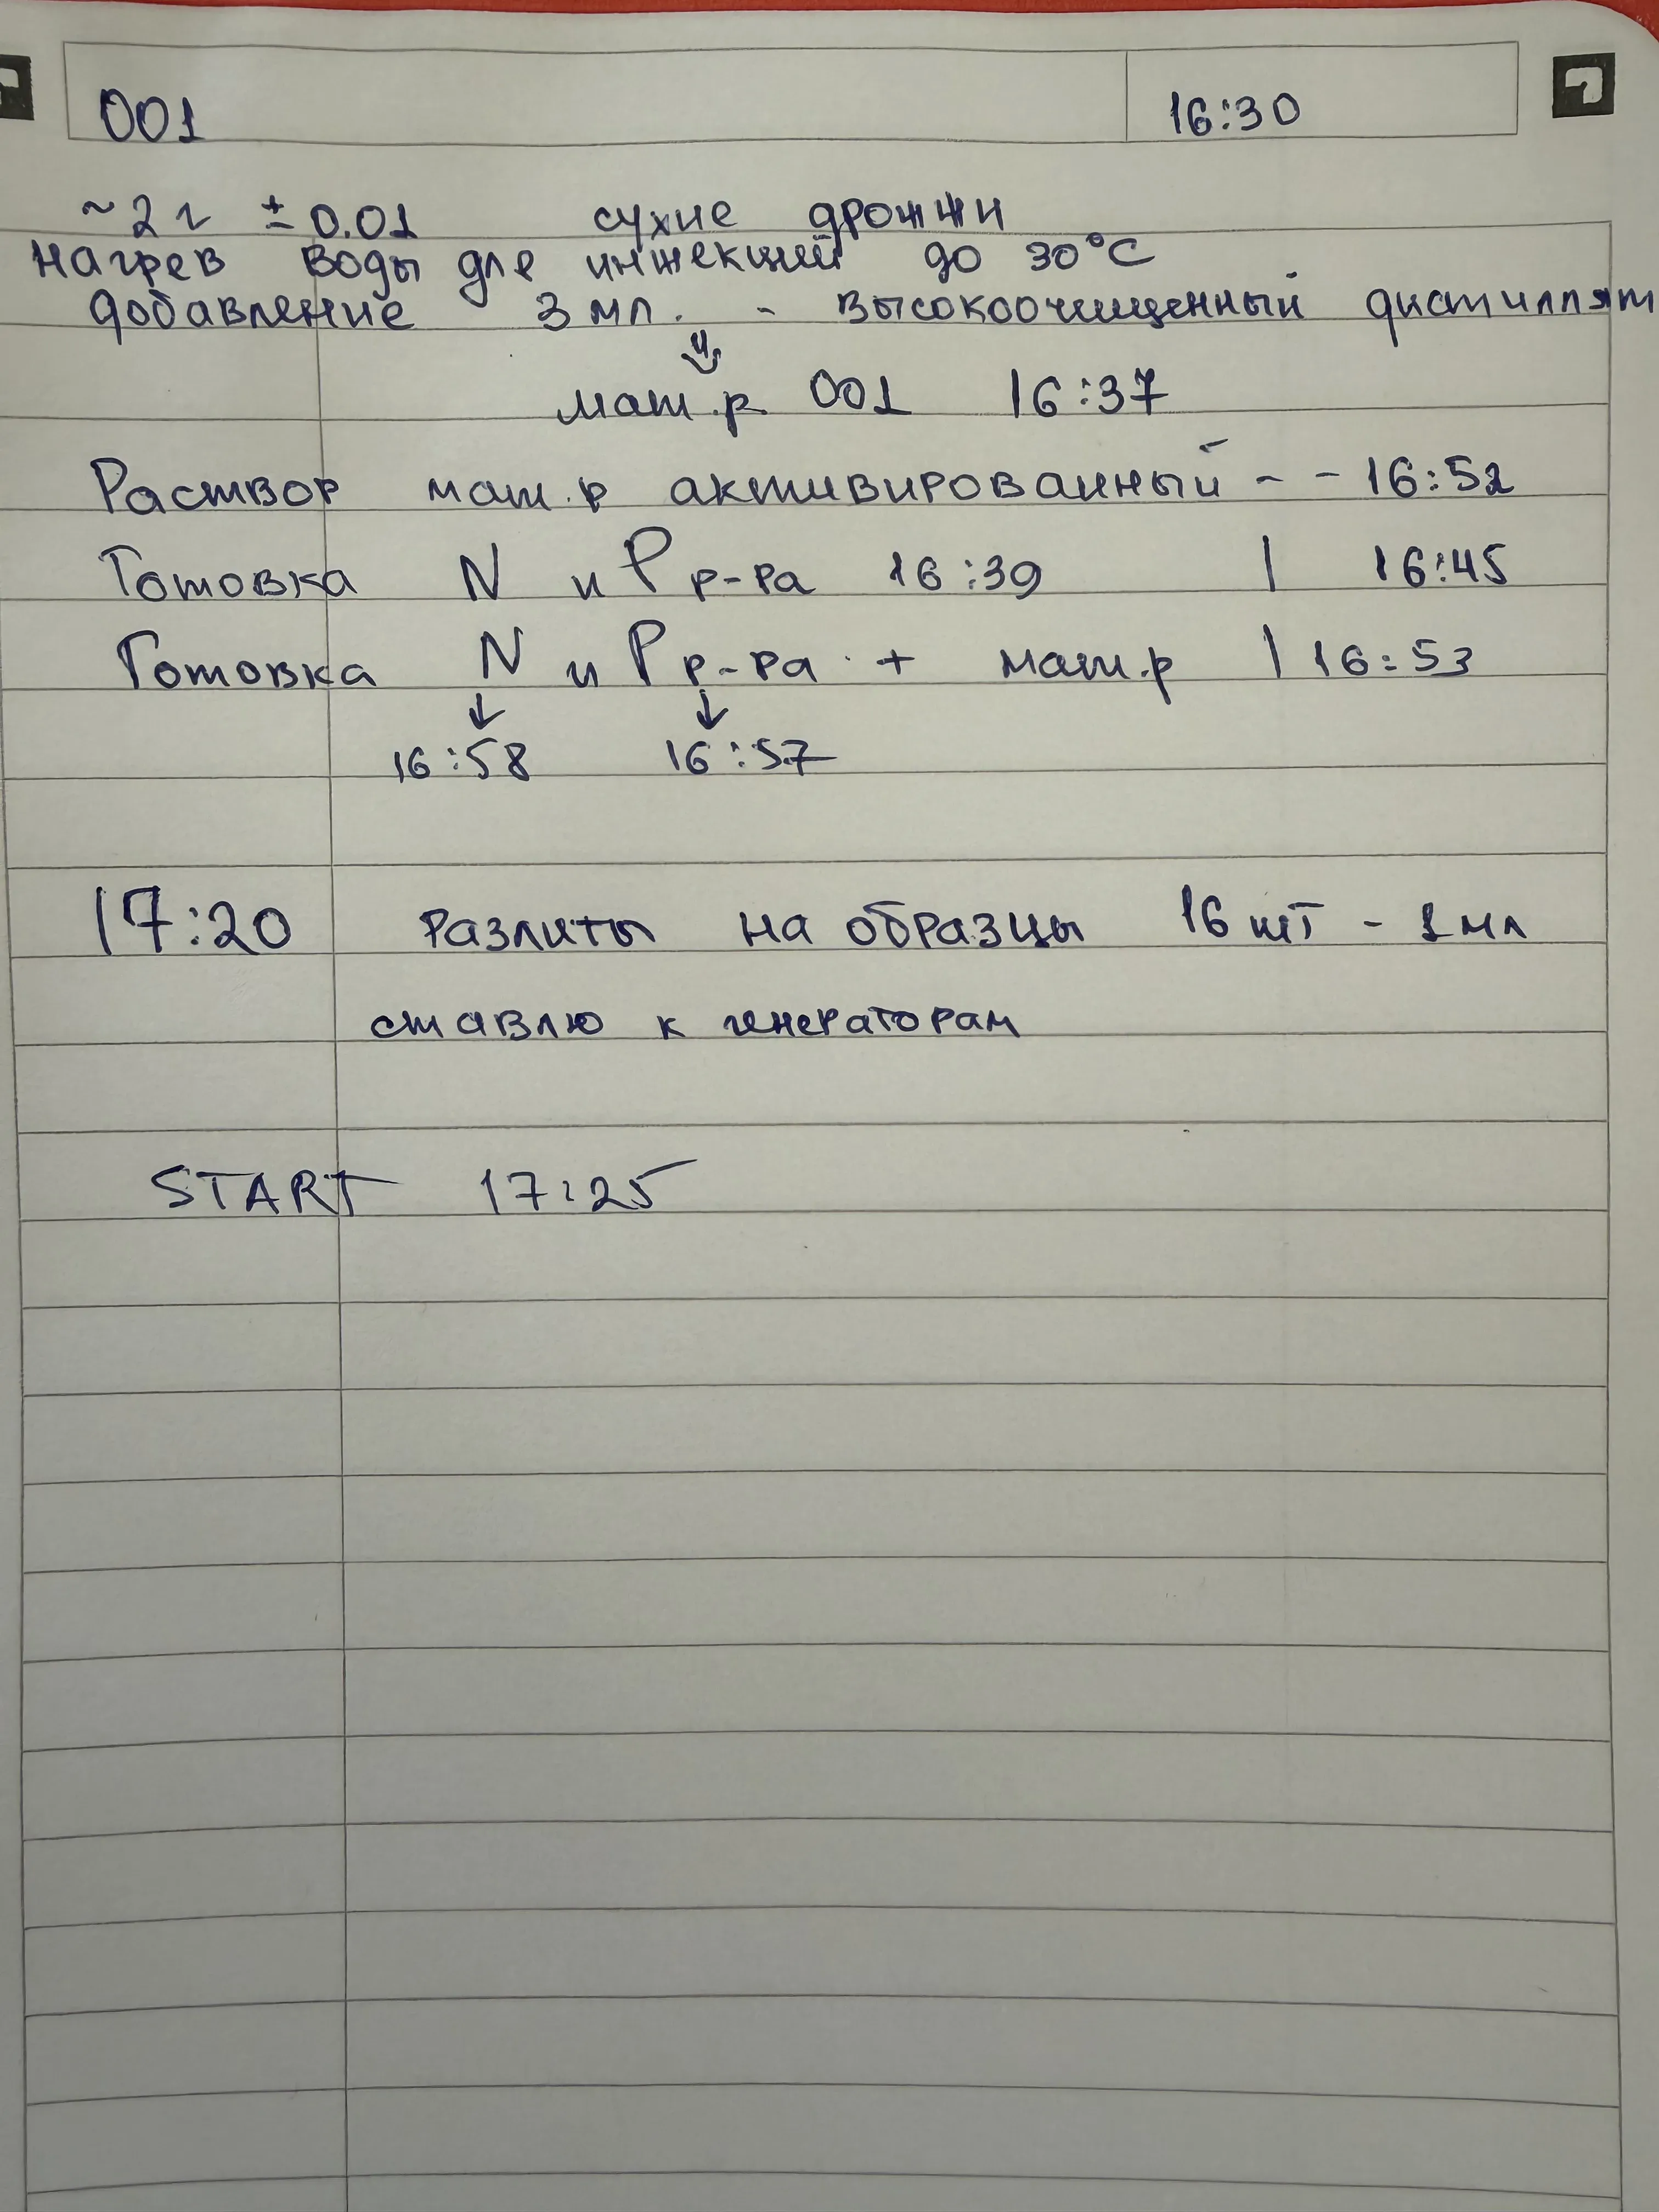 001 16:30
~2 г ± 0.01 сухие дрожжи
нагрев воды для инжекций до 30°C
добавление 3 мл. - высокоочищенный дистиллят
↓
мат.р 001 16:37
Раствор мат.р активированный - - 16:52
Готовка N и P р-ра 16:39 | 16:45
Готовка N и P р-ра + мат.р | 16:53
↓ ↓
16:58 16:57
17:20 Разлиты на образцы 16 шт - 1 мл
ставлю к генераторам
START 17:25